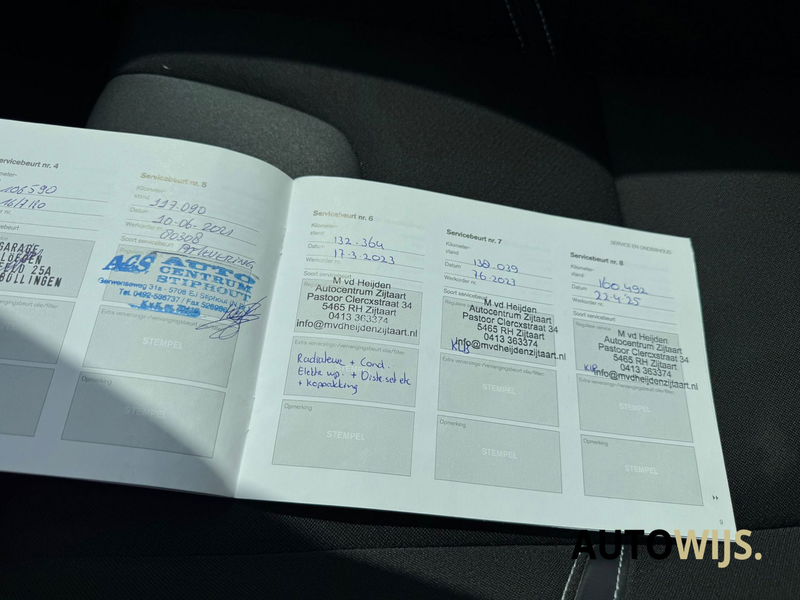 Servicebeurt nr. 4
106590
GARAGE
25A
BULLINGEN
Servicebeurt nr. 5
Kilometer-
stand:
117.090
Datum:
10-06-2021
Werkorder nr.
80308
AFLEVERING
Soort servicebeurt
ACS AUTO
CENTRUM
STIPHOUT
Gerwenseweg 31a - 5708 EJ Stiphout
STEMPEL
Opmerking
STEMPEL
Servicebeurt nr. 6
Kilometer-
stand:
132.364
Datum:
17-3-2023
Werkorder nr.
Soort servicebeurt
M vd Heijden
Autocentrum Zijtaart
Pastoor Clercxstraat 34
5465 RH Zijtaart
0413 363374
info@mvdheijdenzijtaart.nl
Radiateur + Cond.
+ koppakking
Opmerking
STEMPEL
Servicebeurt nr. 7
Kilometer-
stand:
138.039
Datum:
7.6.2023
Werkorder nr.
Soort servicebeurt
M vd Heijden
Autocentrum Zijtaart
Pastoor Clercxstraat 34
5465 RH Zijtaart
0413 363374
info@mvdheijdenzijtaart.nl
STEMPEL
Opmerking
STEMPEL
SERVICE EN ONDERHOUD
Servicebeurt nr. 8
Kilometer-
stand:
160.492
Datum:
22-4-25
Werkorder nr.
Soort servicebeurt
M vd Heijden
Autocentrum Zijtaart
Pastoor Clercxstraat 34
5465 RH Zijtaart
0413 363374
info@mvdheijdenzijtaart.nl
STEMPEL
Opmerking
STEMPEL
9
AUTOWIJS.